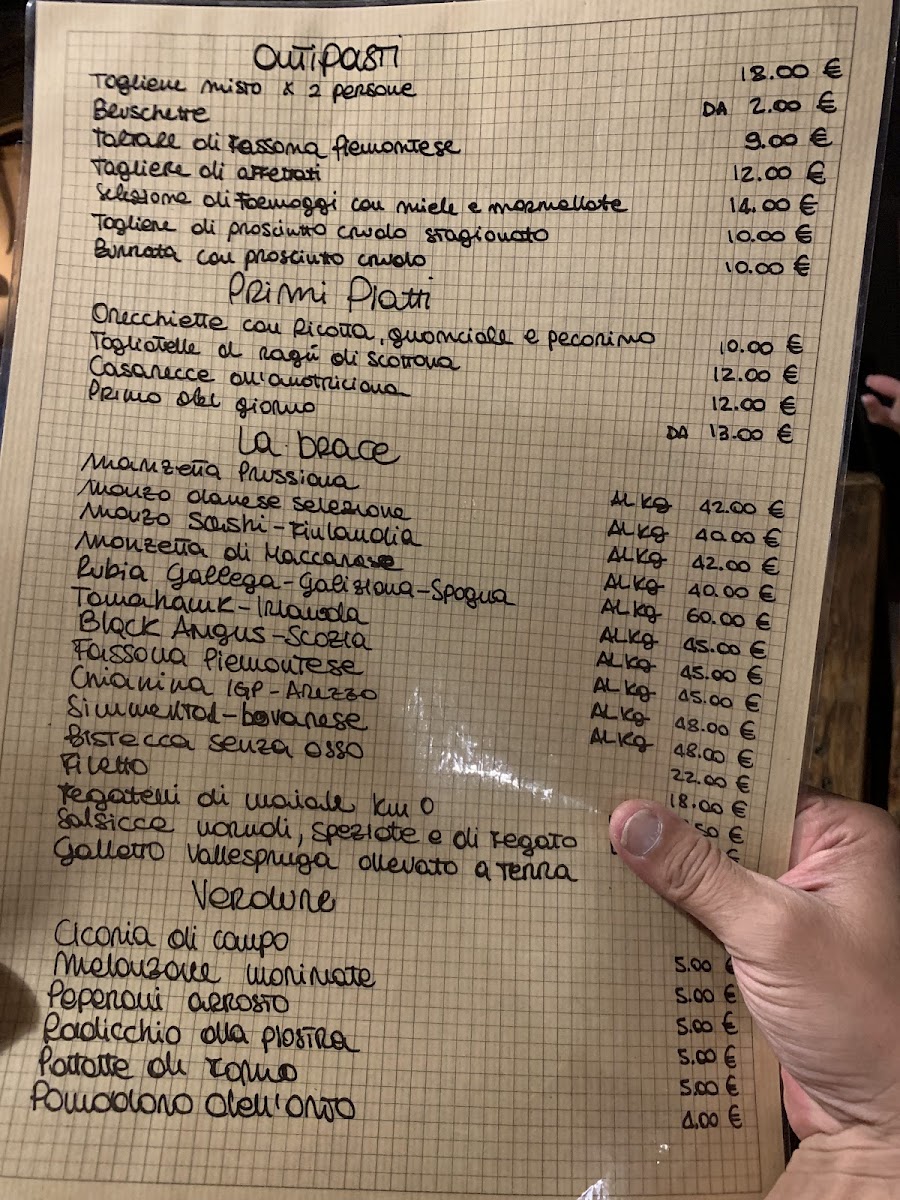 Antipasti
Tagliere misto x 2 persone 18.00 €
Bruschette DA 2.00 €
Tartare di Fassona Piemontese 9.00 €
Tagliere di affettati 12.00 €
Selezione di Formaggi con miele e marmellate 14.00 €
Tagliere di prosciutto crudo stagionato 10.00 €
Burrata con prosciutto crudo 10.00 €
Primi Piatti
Orecchiette con Ricotta, guanciale e pecorino 10.00 €
Tagliatelle al ragù di scottona 12.00 €
Casarecce all'amatriciana 12.00 €
Primo del giorno DA 13.00 €
La brace
Manzetta Prussiana AL Kg 42.00 €
Manzo danese selezione AL Kg 40.00 €
Manzo Sashi-Finlandia AL Kg 42.00 €
Manzetta di Maccarese AL Kg 40.00 €
Rubia Gallega-Galiziana-Spagna AL Kg 60.00 €
Tomahawk-Irlanda AL Kg 45.00 €
Black Angus-Scozia AL Kg 45.00 €
Fassona Piemontese AL Kg 45.00 €
Chianina IGP-Arezzo AL Kg 48.00 €
Simmental-bavarese AL Kg 48.00 €
Bistecca senza osso 22.00 €
Filetto 18.00 €
Fegatelli di maiale km 0 50 €
Salsicce normali, speziate e di fegato €
Galletto Vallespluga allevato a terra
Verdure
Cicoria di campo 5.00 €
Melanzane marinate 5.00 €
Peperoni arrosto 5.00 €
Radicchio alla piastra 5.00 €
Patate al forno 5.00 €
Pomodoro dell'orto 4.00 €